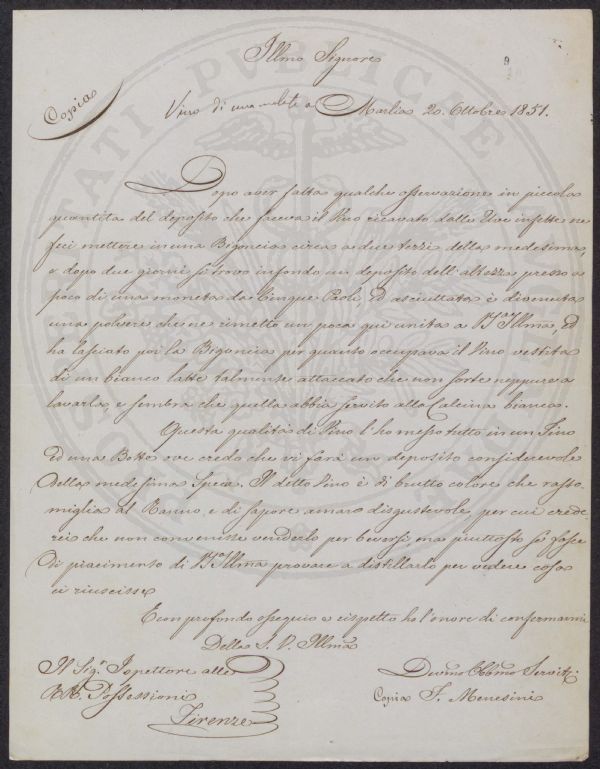 Illmo Signore
Copia
Vino di una malata a Marlia 20. Ottobre 1851.
Dopo aver fatta qualche osservazione in piccola
quantità del deposito che faceva il Vino ricavato dalle Uve infette ne
feci mettere in una Bigoncia circa a due terzi della medesima,
e dopo due giorni si trovò in fondo un deposito dell'altezza presso a
poco di una moneta da Cinque Paoli, ed asciuttata è divenuta
una polvere che ne rimetto un poca qui unita a V.ª Illma, ed
ha lasciato poi la Bigoncia per quanto occupava il Vino vestita
di un bianco latte talmente attaccato che non sorte neppure a
lavarla, e sembra che quella abbia servito alla Calcina bianca.
Questa qualità di Vino l'ho messo tutto in un Tino
ed una Botte ove credo che vi farà un deposito considerevole
della medesima Specie. Il detto Vino è di brutto colore che rasso
miglia al Ranno, e di sapore amaro disgustevole, per cui crede
rei che non convenisse venderlo per beversi, ma piuttosto se fosse
di piacimento di V.ª Illma provare a distillarlo per vedere cosa
ci riuscisse
E con profondo ossequio e rispetto ho l'onore di confermarmi
Della S. V. Illma
Il Sig.r Ispettore alle
RR. Possessioni
Firenze
Devmo Obbmo Servit.e
Copia F. Menesini
PUBLICAE